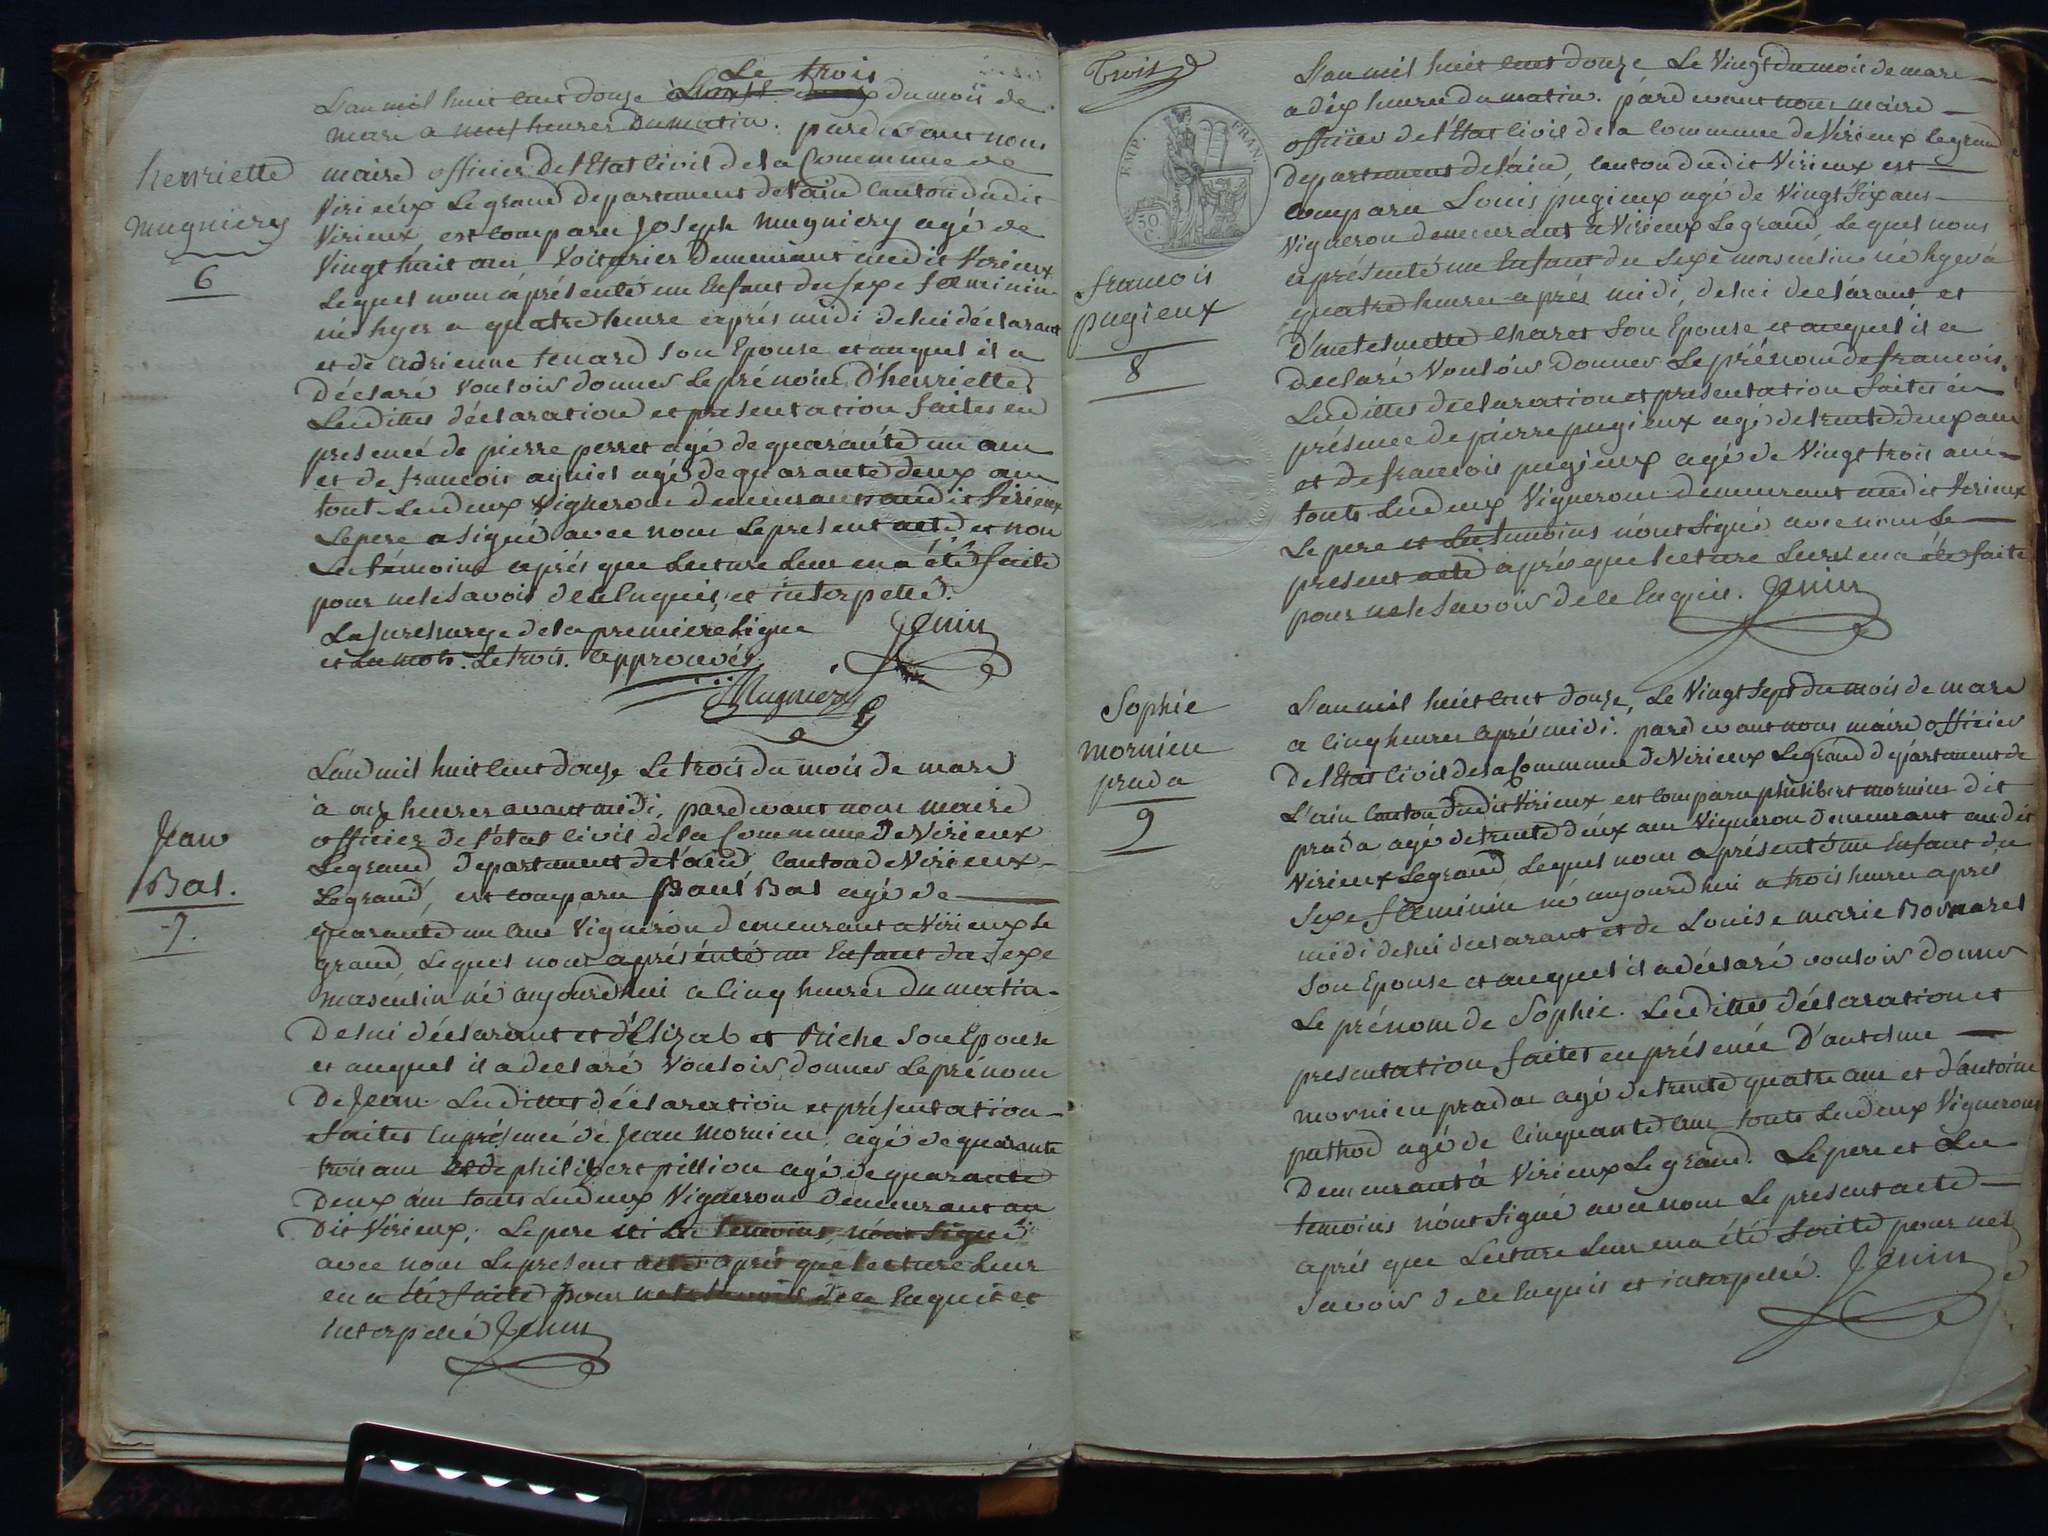 henriette
mugniery
6
Le trois
L'an mil huit cent douze du mois de
mars a neuf heures du matin. pardevant nous
maire officier de l'Etat Civil de la Commune de
Virieux Le grand departement de l'ain Canton dudit
Virieux, est comparu Joseph mugniery agé de
Vingt huit ans Voiturier demeurant audit Virieux
Lequel nous a présenté un Enfant du sexe féminin
né hyer a quatre heure après midi de lui déclarant
et de adrienne tenard son Epouse et auquel il a
déclaré vouloir donner Le prénom d'henriette
Lesdittes déclaration et presentation faites en
presence de pierre perret agé de quarante un ans
et de francois agniel agé de quarante deux ans
tout Lesdeux Vignerons demeurant audit Virieux
Le pere a signé avec nous Le present acte et non
Les témoins après que Lecture Leur en a été faite
pour ne le savoir de ce Enquis et interpellé.
La surcharge de la premiere Ligne Jenin
et Les mots. Le trois. approuvés
Mugniery
Jean
Bal.
7.
L'an mil huit cent douze Le trois du mois de mars
à onze heures avant midi, pardevant nous maire
officier de l'état Civil de la Commune De Virieux
Legrand, département de l'ain, Canton de Virieux
Legrand, est comparu Paul Bal agé de
quarante un ans Vigneron demeurant a Virieux Le
grand, Lequel nous a présenté un Enfant du sexe
masculin né aujourdhui a Cinq heures du matin
De lui déclarant et d'Elizabet Riche son Epouse
et auquel il a declaré Vouloir donner Le prénom
De Jean. Lesdittes déclaration et présentation
faites en présence de Jean Mornieu, agé de quarante
trois ans et de philibert pillion agé de quarante
Deux ans touts Lesdeux Vignerons demeurant au
Dit Virieux, Le pere ni Les temoins, n'ont signé
avec nous Le present acte après que Lecture Leur
en a été faite pour ne le savoir de ce Enquis et
Interpellé Jenin
Trois
EMP. FRAN.
50 C.
francois
pugieux
8
L'an mil huit cent douze Le Vingt du mois de mars
a dix heures du matin. pardevant nous maire
officier de l'Etat Civil de la Commune de Virieux Legrand
departement de l'ain, Canton dudit Virieux est
comparu Louis pugieux agé de Vingt six ans
Vigneron demeurant a Virieux Legrand, Lequel nous
a présenté un Enfant du Sexe masculin né hyer à
quatre heures après midi, de lui déclarant et
D'antelmette Charet son Epouse et auquel il a
declaré Vouloir donner Le prénom de francois.
Lesdittes declaration et presentation faites en
présence de pierre pugieux agé de trente deux ans
et de francois pugieux agé de Vingt trois ans
touts Lesdeux Vignerons demeurant audit Virieux
Le pere et Les temoins n'ont signé avec nous Le
present acte après que lecture Leur en a été faite
pour ne le savoir de ce Enquis. Jenin
Sophie
mornieu
prada
9
L'an mil huit cent douze, Le Vingt sept du mois de mars
a cinq heures après midi. pardevant nous maire officier
De l'Etat Civil de la Commune de Virieux Legrand département de
L'ain Canton dudit Virieux est comparu philibert mornieu dit
prada agé de trente deux ans Vigneron demeurant audit
Virieux Legrand Lequel nous a présenté un Enfant du
Sexe féminin né aujourdhui a trois heures après
midi de lui déclarant et de Louise marie Bornarel
son Epouse et auquel il a déclaré vouloir donner
Le prénom de Sophie. Lesdittes déclaration et
presentation faites en présence D'antelme
mornieu prada agé de trente quatre ans et d'antoine
pathod agé de Cinquante ans touts Lesdeux Vignerons
Demeurant à Virieux Le grand. Le pere et Les
temoins n'ont signé avec nous Le present acte
après que Lecture Leur en a été faite pour ne le
savoir de ce Enquis et interpellé. Jenin